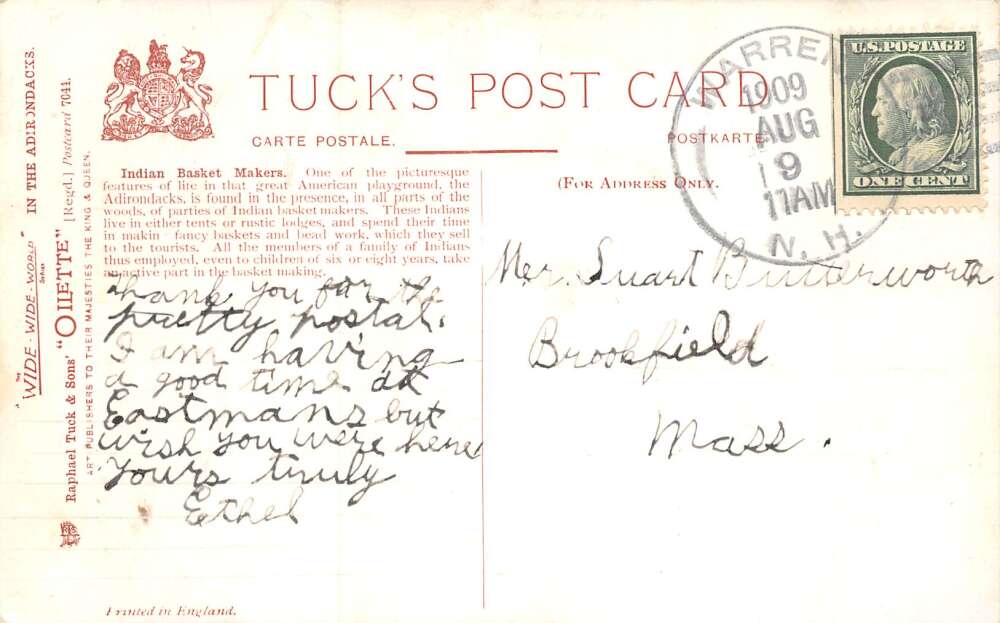 TUCK'S POST CARD
CARTE POSTALE.
POSTKARTE
(FOR ADDRESS ONLY.
WARREN
1909
AUG
9
11AM
N. H.
U.S. POSTAGE
ONE CENT
Indian Basket Makers. One of the picturesque
features of life in that great American playground, the
Adirondacks, is found in the presence, in all parts of the
woods, of parties of Indian basket makers. These Indians
live in either tents or rustic lodges, and spend their time
in makin fancy baskets and bead work, which they sell
to the tourists. All the members of a family of Indians
thus employed, even to children of six or eight years, take
an active part in the basket making.
Thank you for the
pretty postal.
I am having
a good time at
Eastmans but
wish you were here
Yours truly
Ethel
Mer. Suart Butterworth
Brookfield
Mass.
THE "WIDE-WIDE-WORLD" Series IN THE ADIRONDACKS.
Raphael Tuck & Sons' "OILETTE" [Regd.] Postcard 7041.
ART PUBLISHERS TO THEIR MAJESTIES THE KING & QUEEN.
Printed in England.